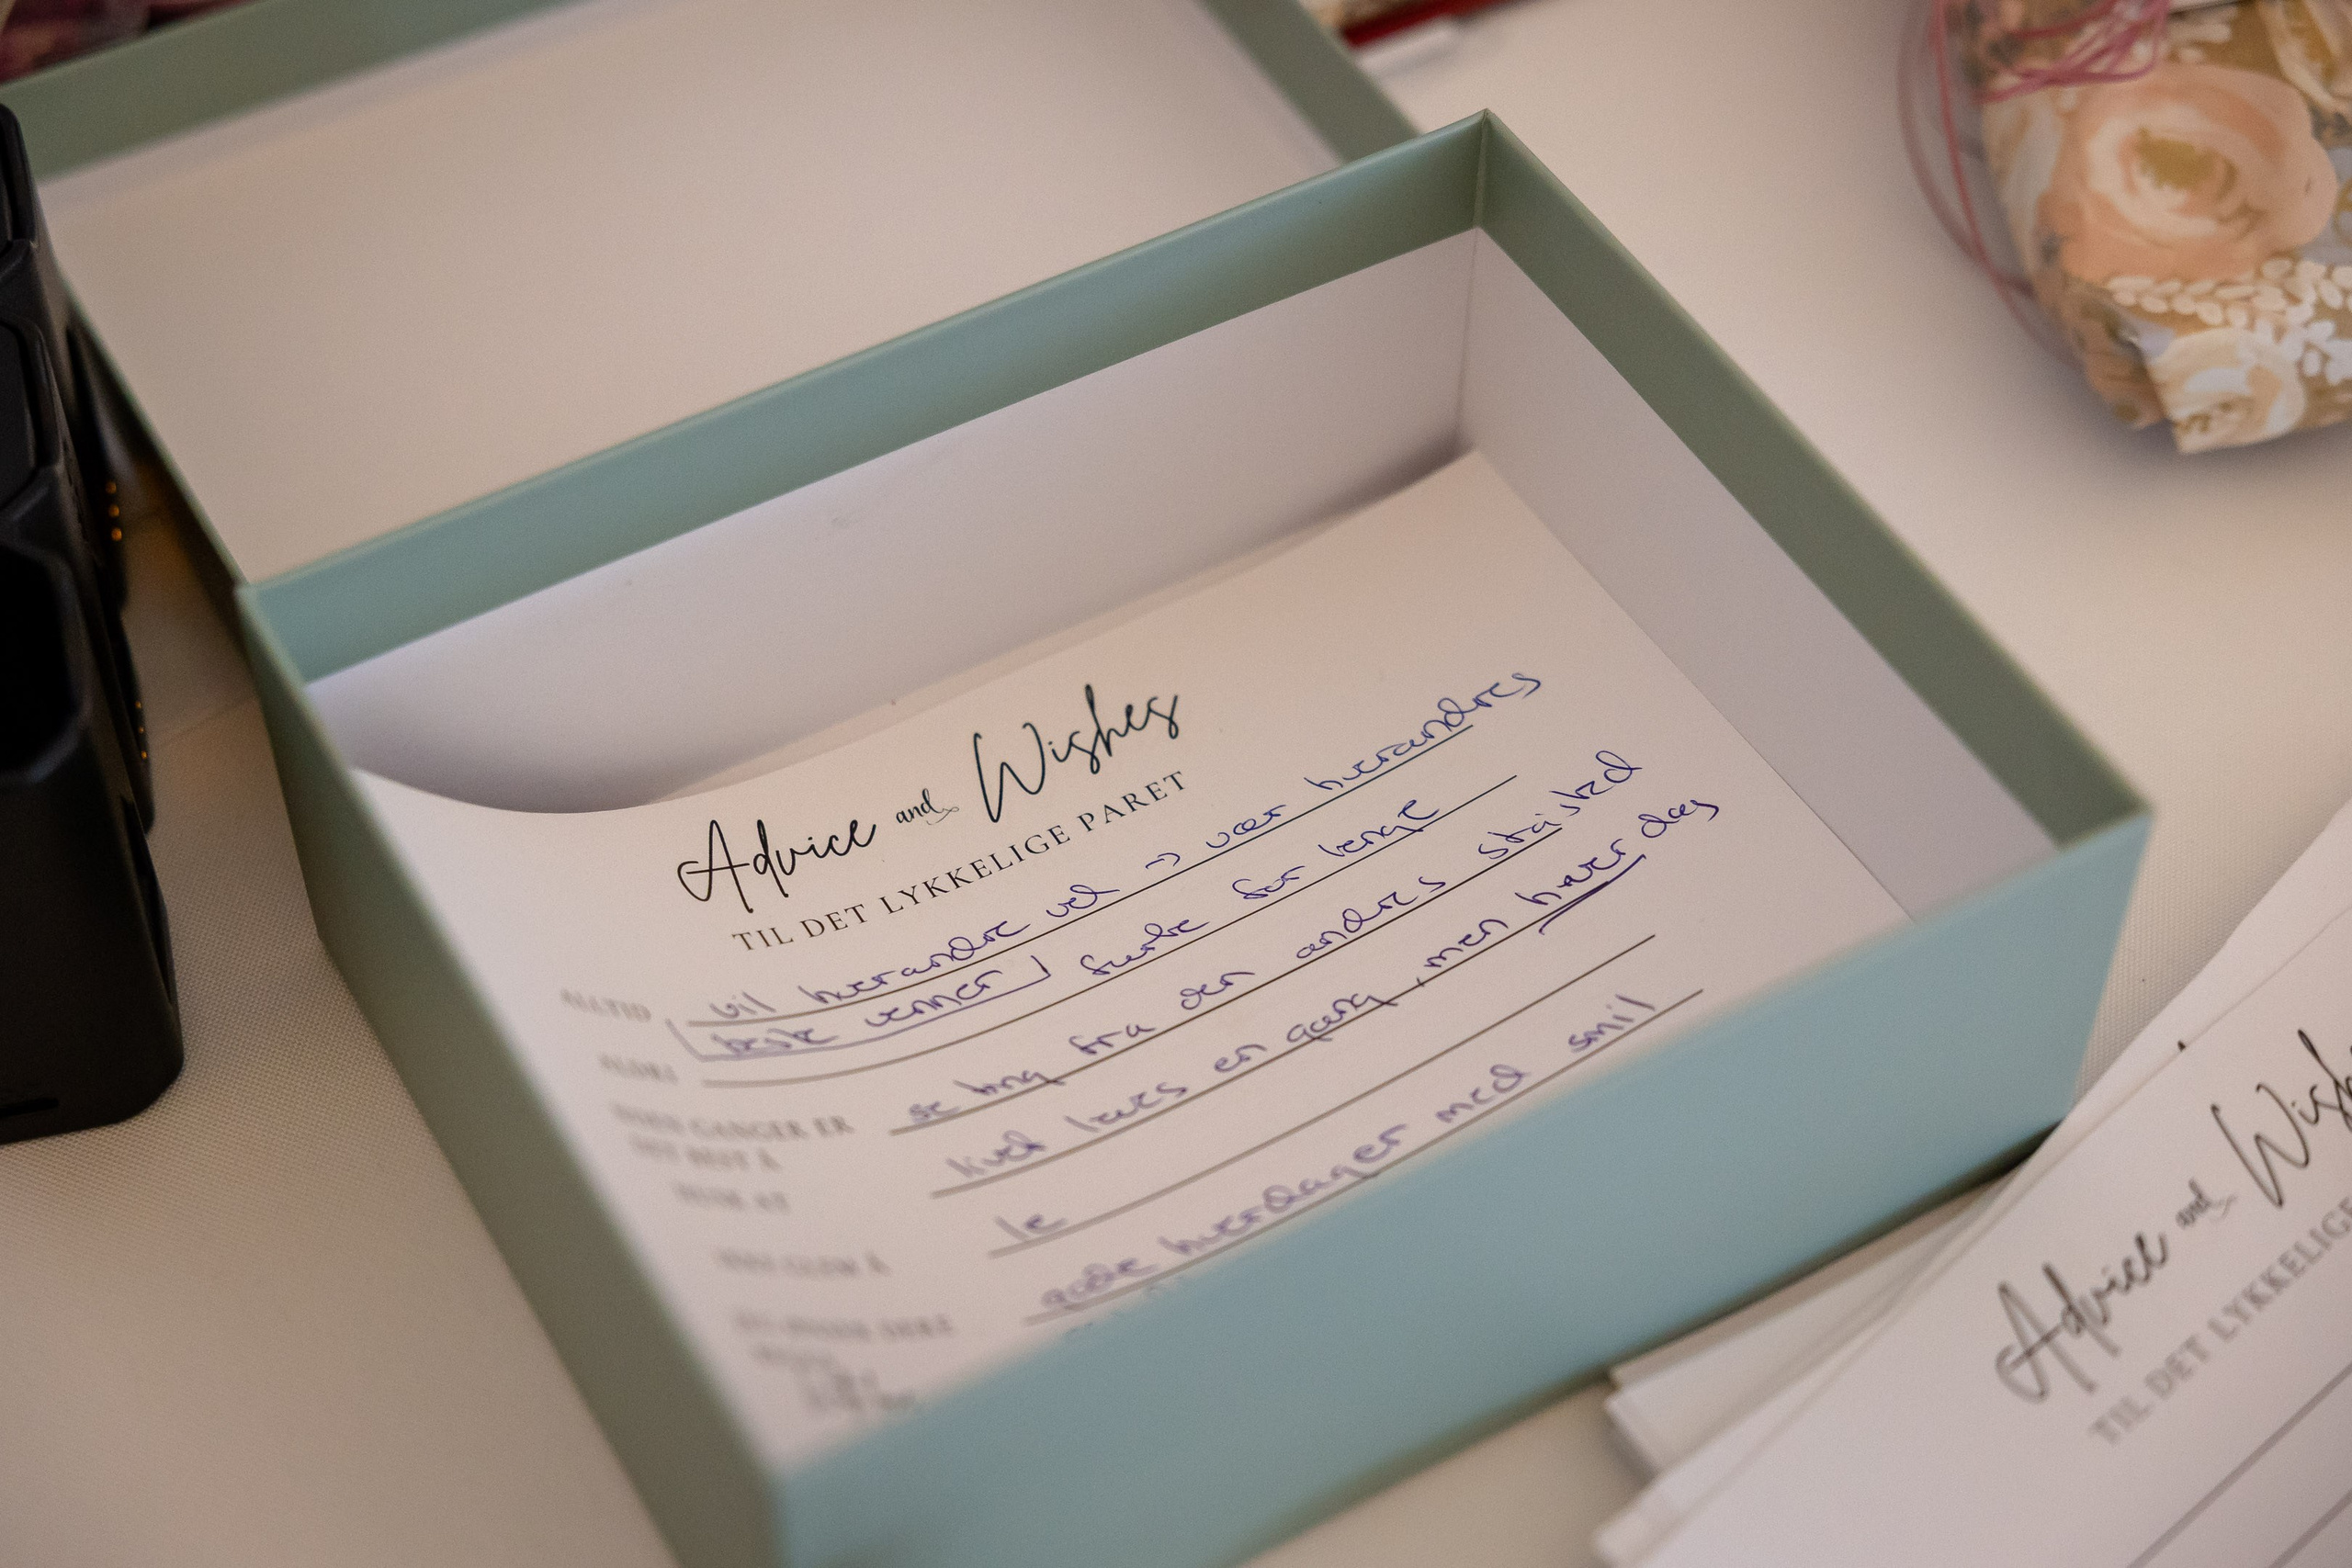 Advice and Wishes
TIL DET LYKKELIGE PARET
ALLTID vil hverandre vel -> vær hverandres
beste venner
ALDRI furte for lenge
NOEN GANGER ER DET BEST Å se ting fra den andres ståsted
HUSK AT livet leves en gang, men hver dag
IKKE GLEM Å le
gode hverdager med smil
Advice and Wish
TIL DET LYKKELIGE